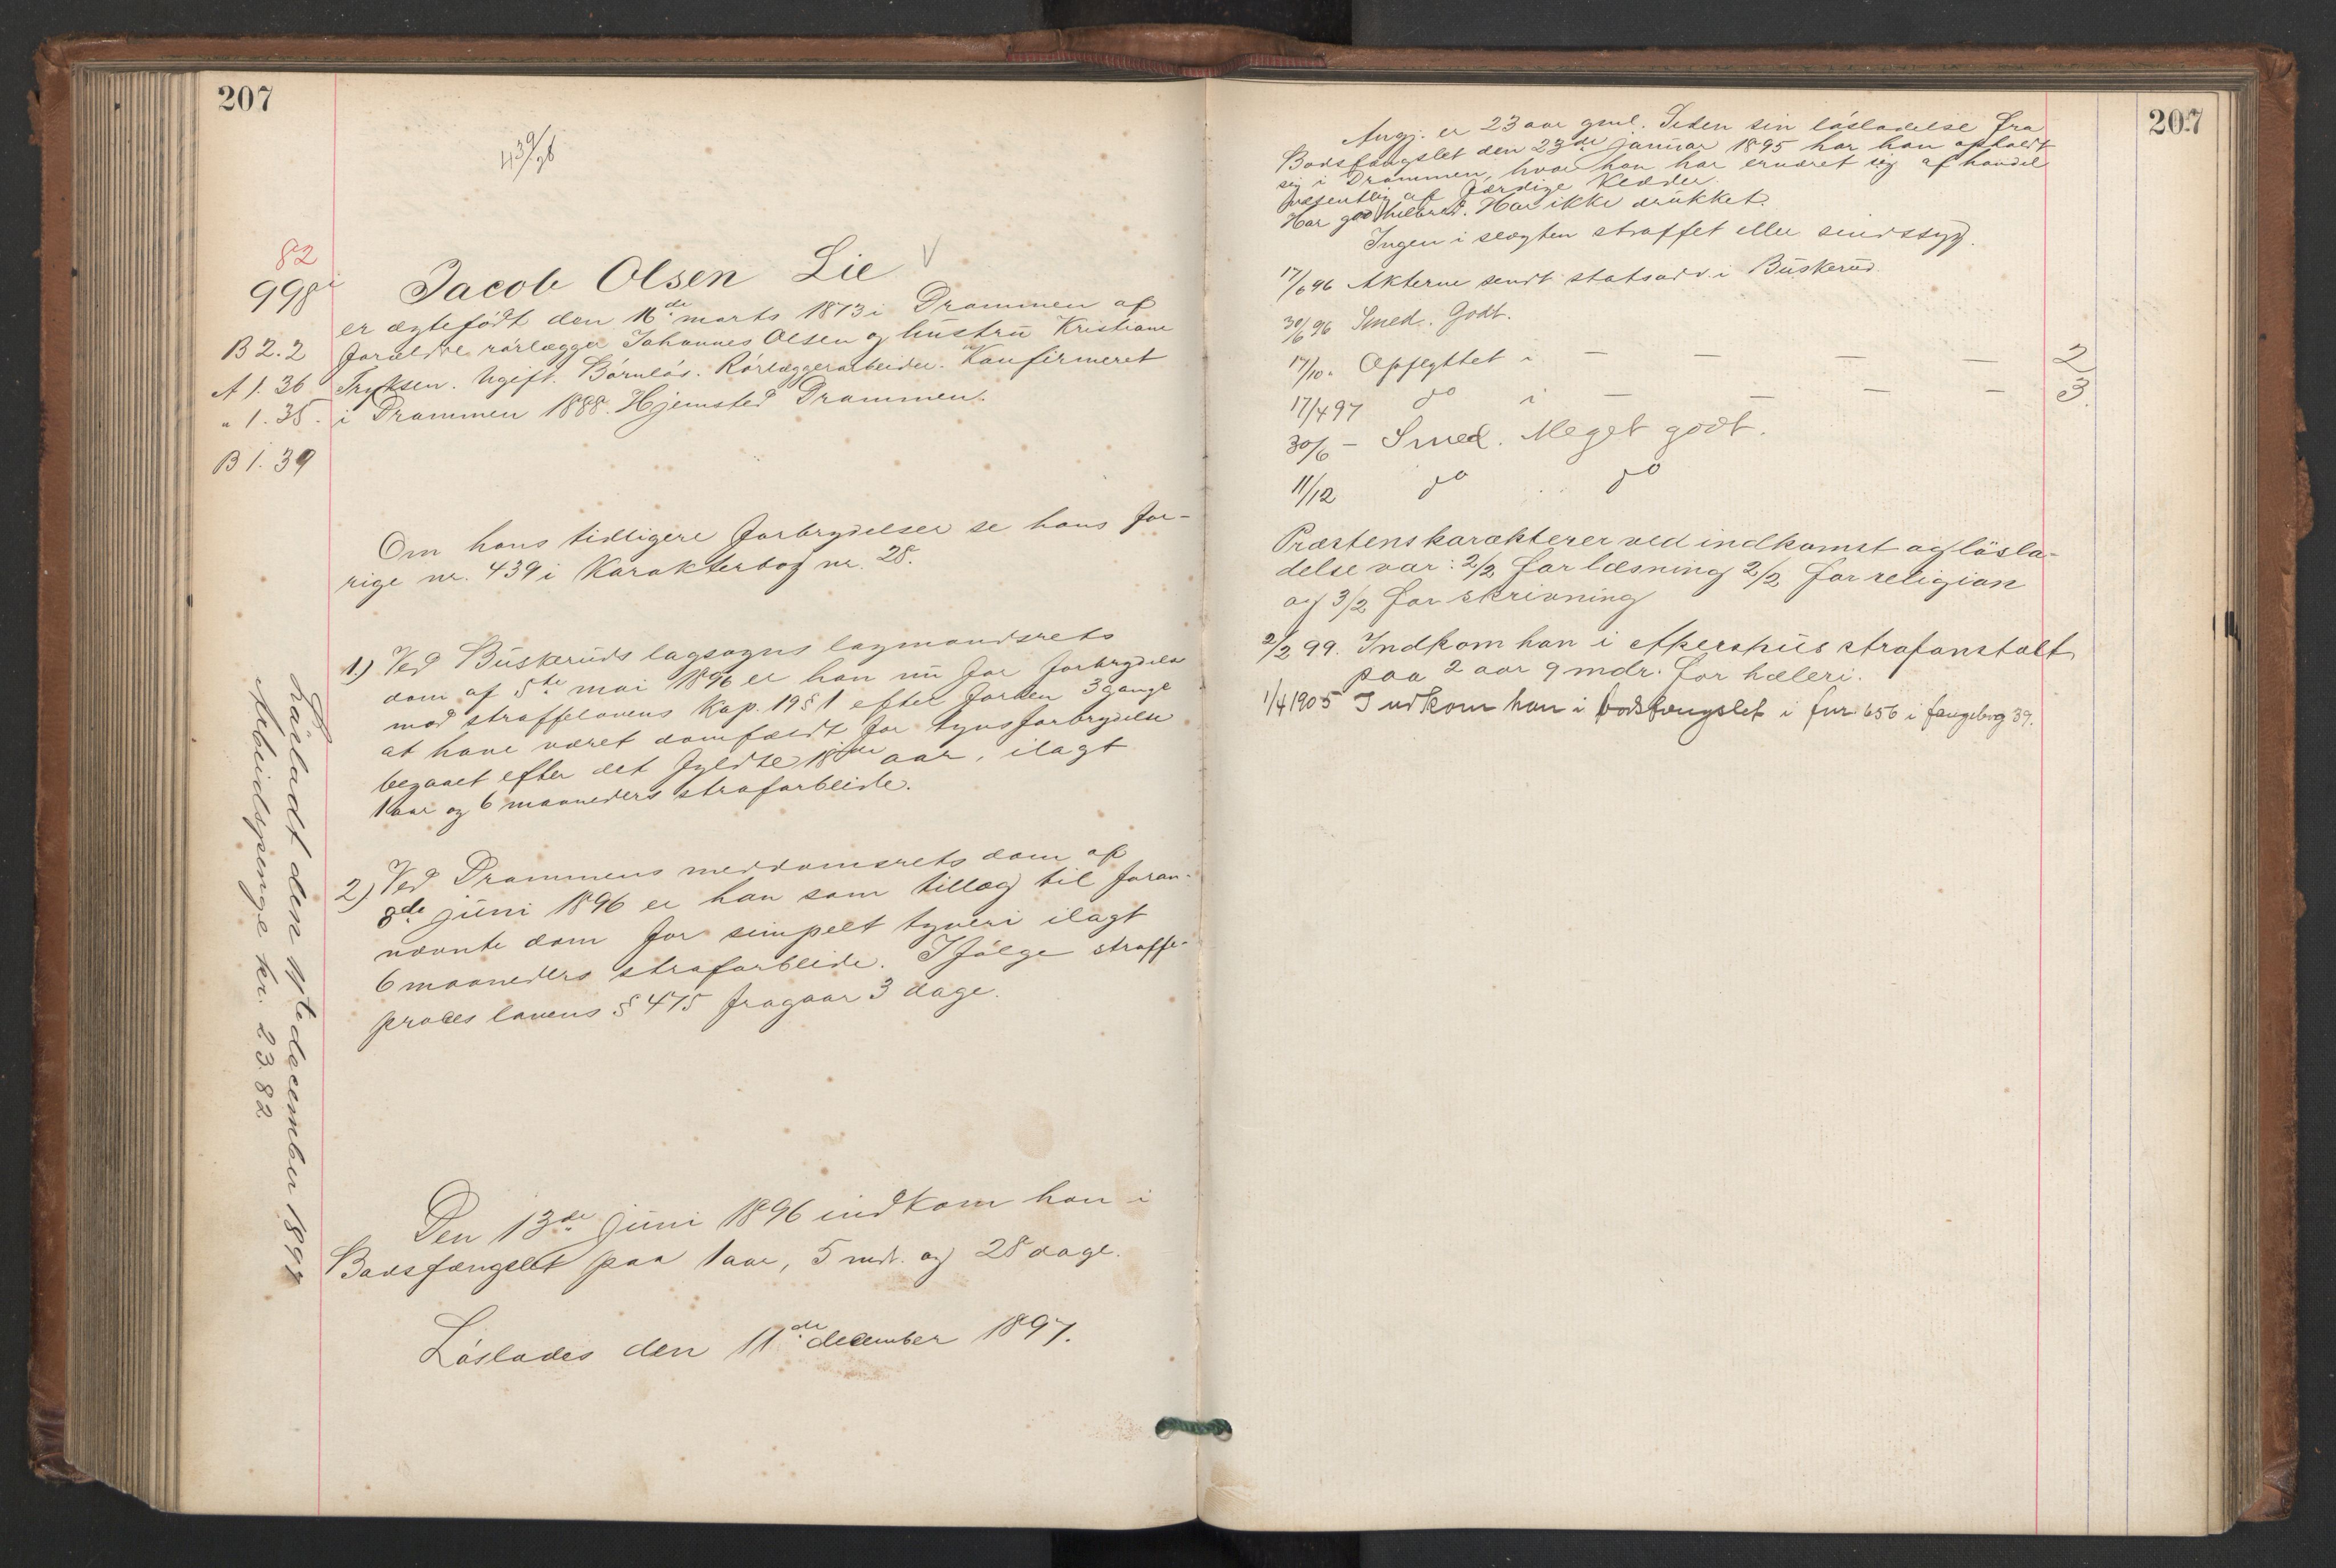 207
439/96
82
998
B 2.2
A 1.36
" 1.35.
B 1.39
Jacob Olsen Lie
er ægtefødt den 16de marts 1873 i Drammen af
forældre rørlægger Johannes Olsen og hustru Kristiane
Ugift. Børnløs. Rørlæggerarbeider. Konfirmeret
i Drammen 1888. Hjemsted Drammen.
Om hans tidligere forbrydelser se hans for-
rige nr. 439 i Karakterbog nr. 28.
1.) Ved Buskeruds lagsogns lagmandsrets
dom af 5te mai 1896 er han nu for forbrydelse
mod straffelovens Kap. 19 § 1 efter forhen 3 gange
at have været domfældt for tyvsforbrydelse
begaaet efter det fyldte 18de aar, ilagt
1 aar og 6 maaneders strafarbeide.
2) Ved Drammens meddomsrets dom af
8de juni 1896 er han som tillæg til foran-
nævnte dom for simpelt tyveri ilagt
6 maaneders strafarbeide. Ifølge straffe-
proces lovens § 475 fragaar 3 dage.
Den 13de juni 1896 indkom han i
Bodsfængslet paa 1 aar, 5 mdr. og 28 dage.
Løslades den 11de december 1897.
Løsladt den 11te december 1897
Arbeidspenge kr. 23.82
207
Angj. er 23 aar gml. Siden sin løsladelse fra
Bodsfængslet den 23de januar 1895 har han opholdt
sig i Drammen, hvor han har ernæret sig af handel
væsentlig af færdige Klæder.
Har god helbred. Har ikke drukket.
Ingen i slægten straffet eller sindssyg.
17/6 96 Akterne sendt statsadv. i Buskerud
30/6 96 Smed. Godt.
17/10. Opflyttet i — — — — 2
17/4 97 do i — — — — 3.
30/6 – Smed. Meget godt.
11/12 do .. do
Præstens karakterer ved indkomst og løsla-
delse var: 2/2 for læsning 2/2 for religion
og 3/2 for skrivning
2/2 99. Indkom han i Akershus strafanstalt
paa 2 aar 9 mdr. for hæleri.
1/4 1905 Indkom han i bodsfængslet i fnr. 656 i fangebog 39.